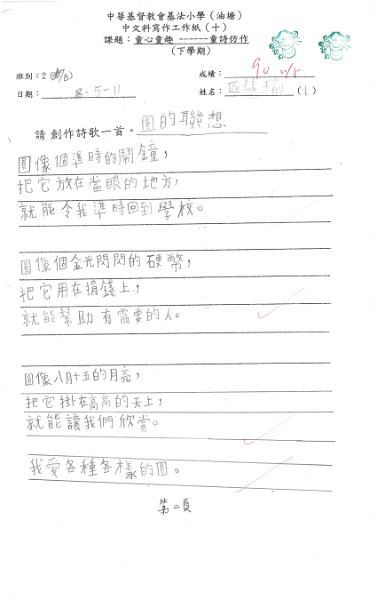 中華基督教會基法小學（油塘）
中文科寫作工作紙（十）
課題：童心童趣------童詩仿作
（下學期）
成績：90
班別：2
日期：-5-11
（1）
請創作詩歌一首。圓的聯想
圓像個準時的鬧鐘，
把它放在當眼的地方，
就能令我準時回到學校。
圓像個金光閃閃的硬幣，
把它用在捐錢上，
就能幫助有需要的人。
圓像八月十五的月亮，
把它掛在高高的天上，
就能讓我們欣賞。
我愛各種各樣的圓。
第二頁